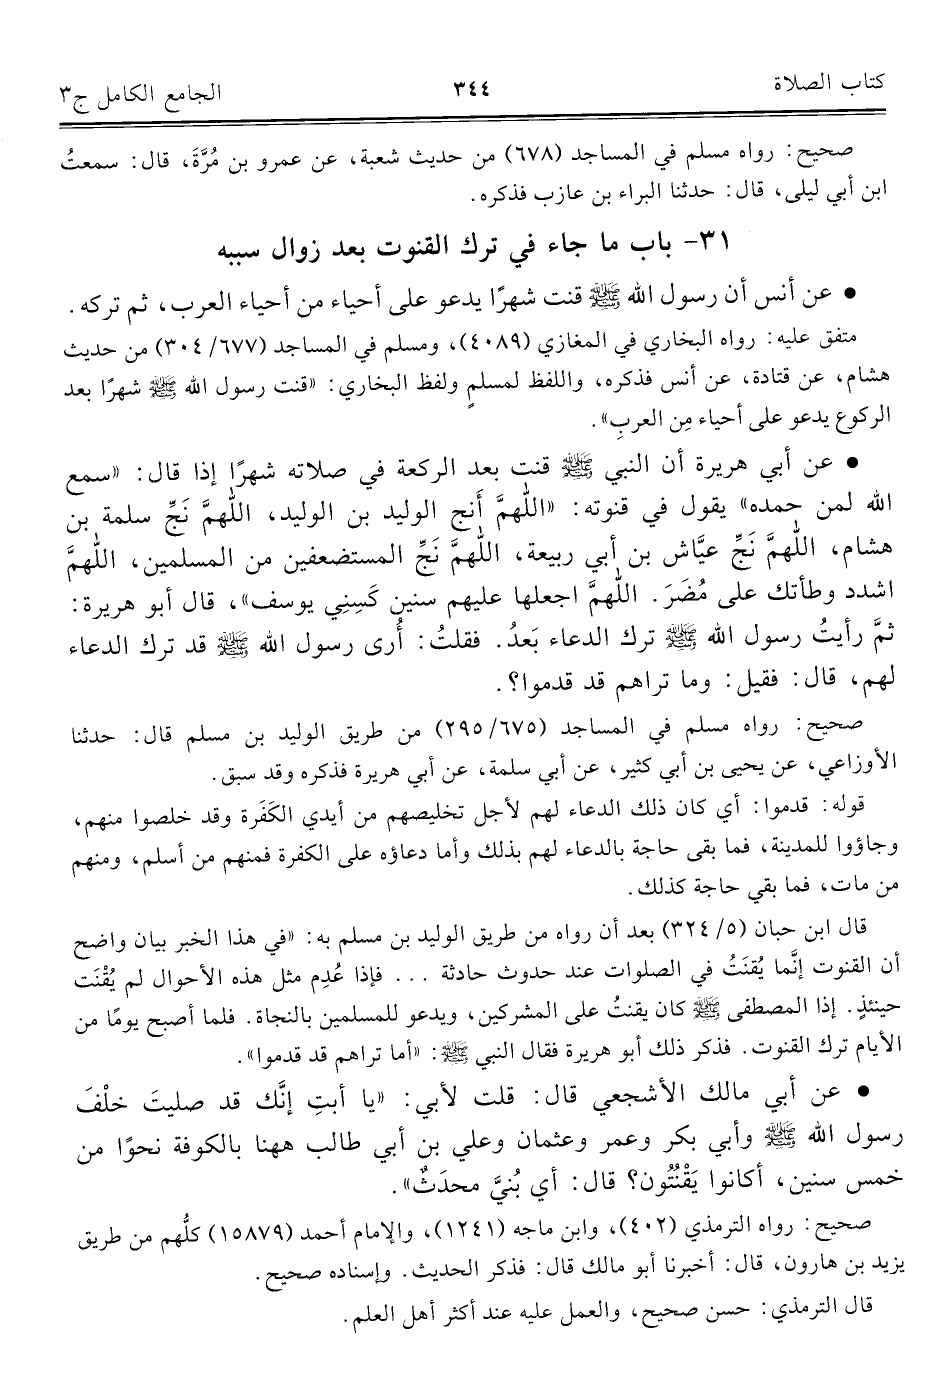 كتاب الصلاة ٣٤٤ الجامع الكامل ج٣
صحيح: رواه مسلم في المساجد (٦٧٨) من حديث شعبة، عن عمرو بن مُرَّةَ، قال: سمعتُ
ابن أبي ليلى، قال: حدثنا البراء بن عازب فذكره.
٣١- باب ما جاء في ترك القنوت بعد زوال سببه
• عن أنس أن رسول الله ﷺ قنت شهرًا يدعو على أحياء من أحياء العرب، ثم تركه.
متفق عليه: رواه البخاري في المغازي (٤٠٨٩)، ومسلم في المساجد (٦٧٧/ ٣٠٤) من حديث
هشام، عن قتادة، عن أنس فذكره، واللفظ لمسلمٍ ولفظ البخاري: «قنت رسول الله ﷺ شهرًا بعد
الركوع يدعو على أحياء مِن العربِ».
• عن أبي هريرة أن النبي ﷺ قنت بعد الركعة في صلاته شهرًا إذا قال: «سمع
الله لمن حمده» يقول في قنوته: «اللهمَّ أنج الوليد بن الوليد، اللهمَّ نَجِّ سلمة بن
هشام، اللهمَّ نَجِّ عيَّاش بن أبي ربيعة، اللهمَّ نَجِّ المستضعفين من المسلمين، اللهمَّ
اشدد وطأتك على مُضَرَ. اللهمَّ اجعلها عليهم سنين كَسِنِي يوسف»، قال أبو هريرة:
ثمَّ رأيتُ رسول الله ﷺ ترك الدعاء بَعدُ. فقلتُ: أُرى رسول الله ﷺ قد ترك الدعاء
لهم، قال: فقيل: وما تراهم قد قدموا؟.
صحيح: رواه مسلم في المساجد (٦٧٥/ ٢٩٥) من طريق الوليد بن مسلم قال: حدثنا
الأوزاعي، عن يحيى بن أبي كثير، عن أبي سلمة، عن أبي هريرة فذكره وقد سبق.
قوله: قدموا: أي كان ذلك الدعاء لهم لأجل تخليصهم من أيدي الكَفَرة وقد خلصوا منهم،
وجاؤوا للمدينة، فما بقى حاجة بالدعاء لهم بذلك وأما دعاؤه على الكفرة فمنهم من أسلم، ومنهم
من مات، فما بقي حاجة كذلك.
قال ابن حبان (٥/ ٣٢٤) بعد أن رواه من طريق الوليد بن مسلم به: «في هذا الخبر بيان واضح
أن القنوت إنَّما يُقنَتُ في الصلوات عند حدوث حادثة ... فإذا عُدِم مثل هذه الأحوال لم يُقْنَت
حينئذٍ. إذا المصطفى ﷺ كان يقنتُ على المشركين، ويدعو للمسلمين بالنجاة. فلما أصبح يومًا من
الأيام ترك القنوت. فذكر ذلك أبو هريرة فقال النبي ﷺ: «أما تراهم قد قدموا».
• عن أبي مالك الأشجعي قال: قلت لأبي: «يا أبتِ إنَّك قد صليتَ خلْفَ
رسول الله ﷺ وأبي بكر وعمر وعثمان وعلي بن أبي طالب ههنا بالكوفة نحوًا من
خمس سنين، أكانوا يَقْنُتُون؟ قال: أي بُنيَّ محدَثٌ».
صحيح: رواه الترمذي (٤٠٢)، وابن ماجه (١٢٤١)، والإمام أحمد (١٥٨٧٩) كلُّهم من طريق
يزيد بن هارون، قال: أخبرنا أبو مالك قال: فذكر الحديث. وإسناده صحيح.
قال الترمذي: حسن صحيح، والعمل عليه عند أكثر أهل العلم.